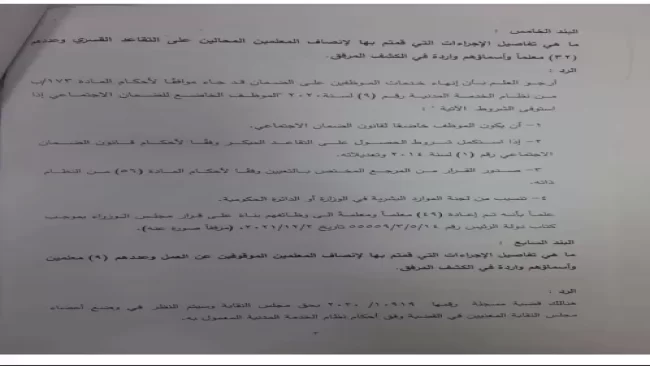 البند الخامس :
ما هي تفاصيل الإجراءات التي قمتم بها لإنصاف المعلمين المحالين على التقاعد القسري وعددهم
(٣٢) معلماً وأسماؤهم واردة في الكشف المرفق.
الرد :
أرجو العلم بأن إنهاء خدمات الموظفين على الضمان قد جاء موافقاً لأحكام المادة ١٧٣/ب
من نظام الخدمة المدنية رقم (٩) لسنة ٢٠٢٠ "الموظف الخاضع للضمان الاجتماعي إذا
استوفى الشروط الآتية :
١- أن يكون الموظف خاضعا لقانون الضمان الاجتماعي.
٢- إذا استكمل شروط الحصول على التقاعد المبكر وفقا لأحكام قانون الضمان
الاجتماعي رقم (١) لسنة ٢٠١٤ وتعديلاته.
٣- صدور القرار من المرجع المختص بالتعيين وفقا لأحكام المادة (٥٦) من النظام
ذاته.
٤- تنسيب من لجنة الموارد البشرية في الوزارة أو الدائرة الحكومية.
علماً بأنه تم إعادة (٤٩) معلماً ومعلمة الى وظائفهم بناءً على قرار مجلس الوزراء بموجب
كتاب دولة الرئيس رقم ٥٥٥٥٩/٣/٥/١٤ تاريخ ٢٠٢١/١٢/٢، (مرفقاً صوره عنه).
البند السابع :
ما هي تفاصيل الإجراءات التي قمتم بها لإنصاف المعلمين الموقوفين عن العمل وعددهم (٩) معلمين
وأسماؤهم واردة في الكشف المرفق.
الرد :
هنالك قضية مسجلة رقمها ٢٠٢٠/١٠٩١٩ بحق مجلس النقابة وسيتم النظر في وضع أعضاء
مجلس النقابة المعنيين في القضية وفق أحكام نظام الخدمة المدنية المعمول به.